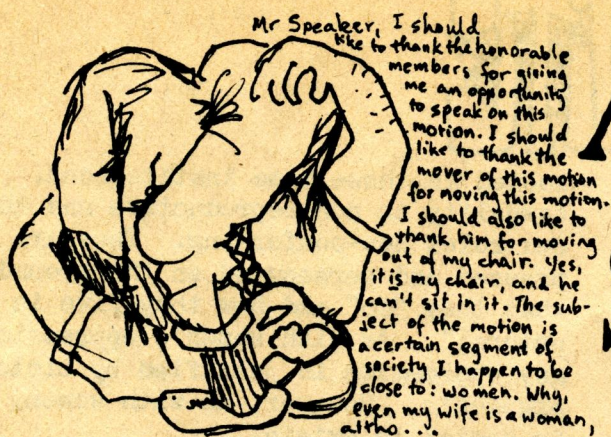 Mr Speaker, I should
like to thank the honorable
members for giving
me an opportunity
to speak on this
motion. I should
like to thank the
mover of this motion
for moving this motion.
I should also like to
thank him for moving
out of my chair. Yes,
it is my chair, and he
can't sit in it. The sub-
ject of the motion is
a certain segment of
society I happen to be
close to: women. Why,
even my wife is a woman,
altho...